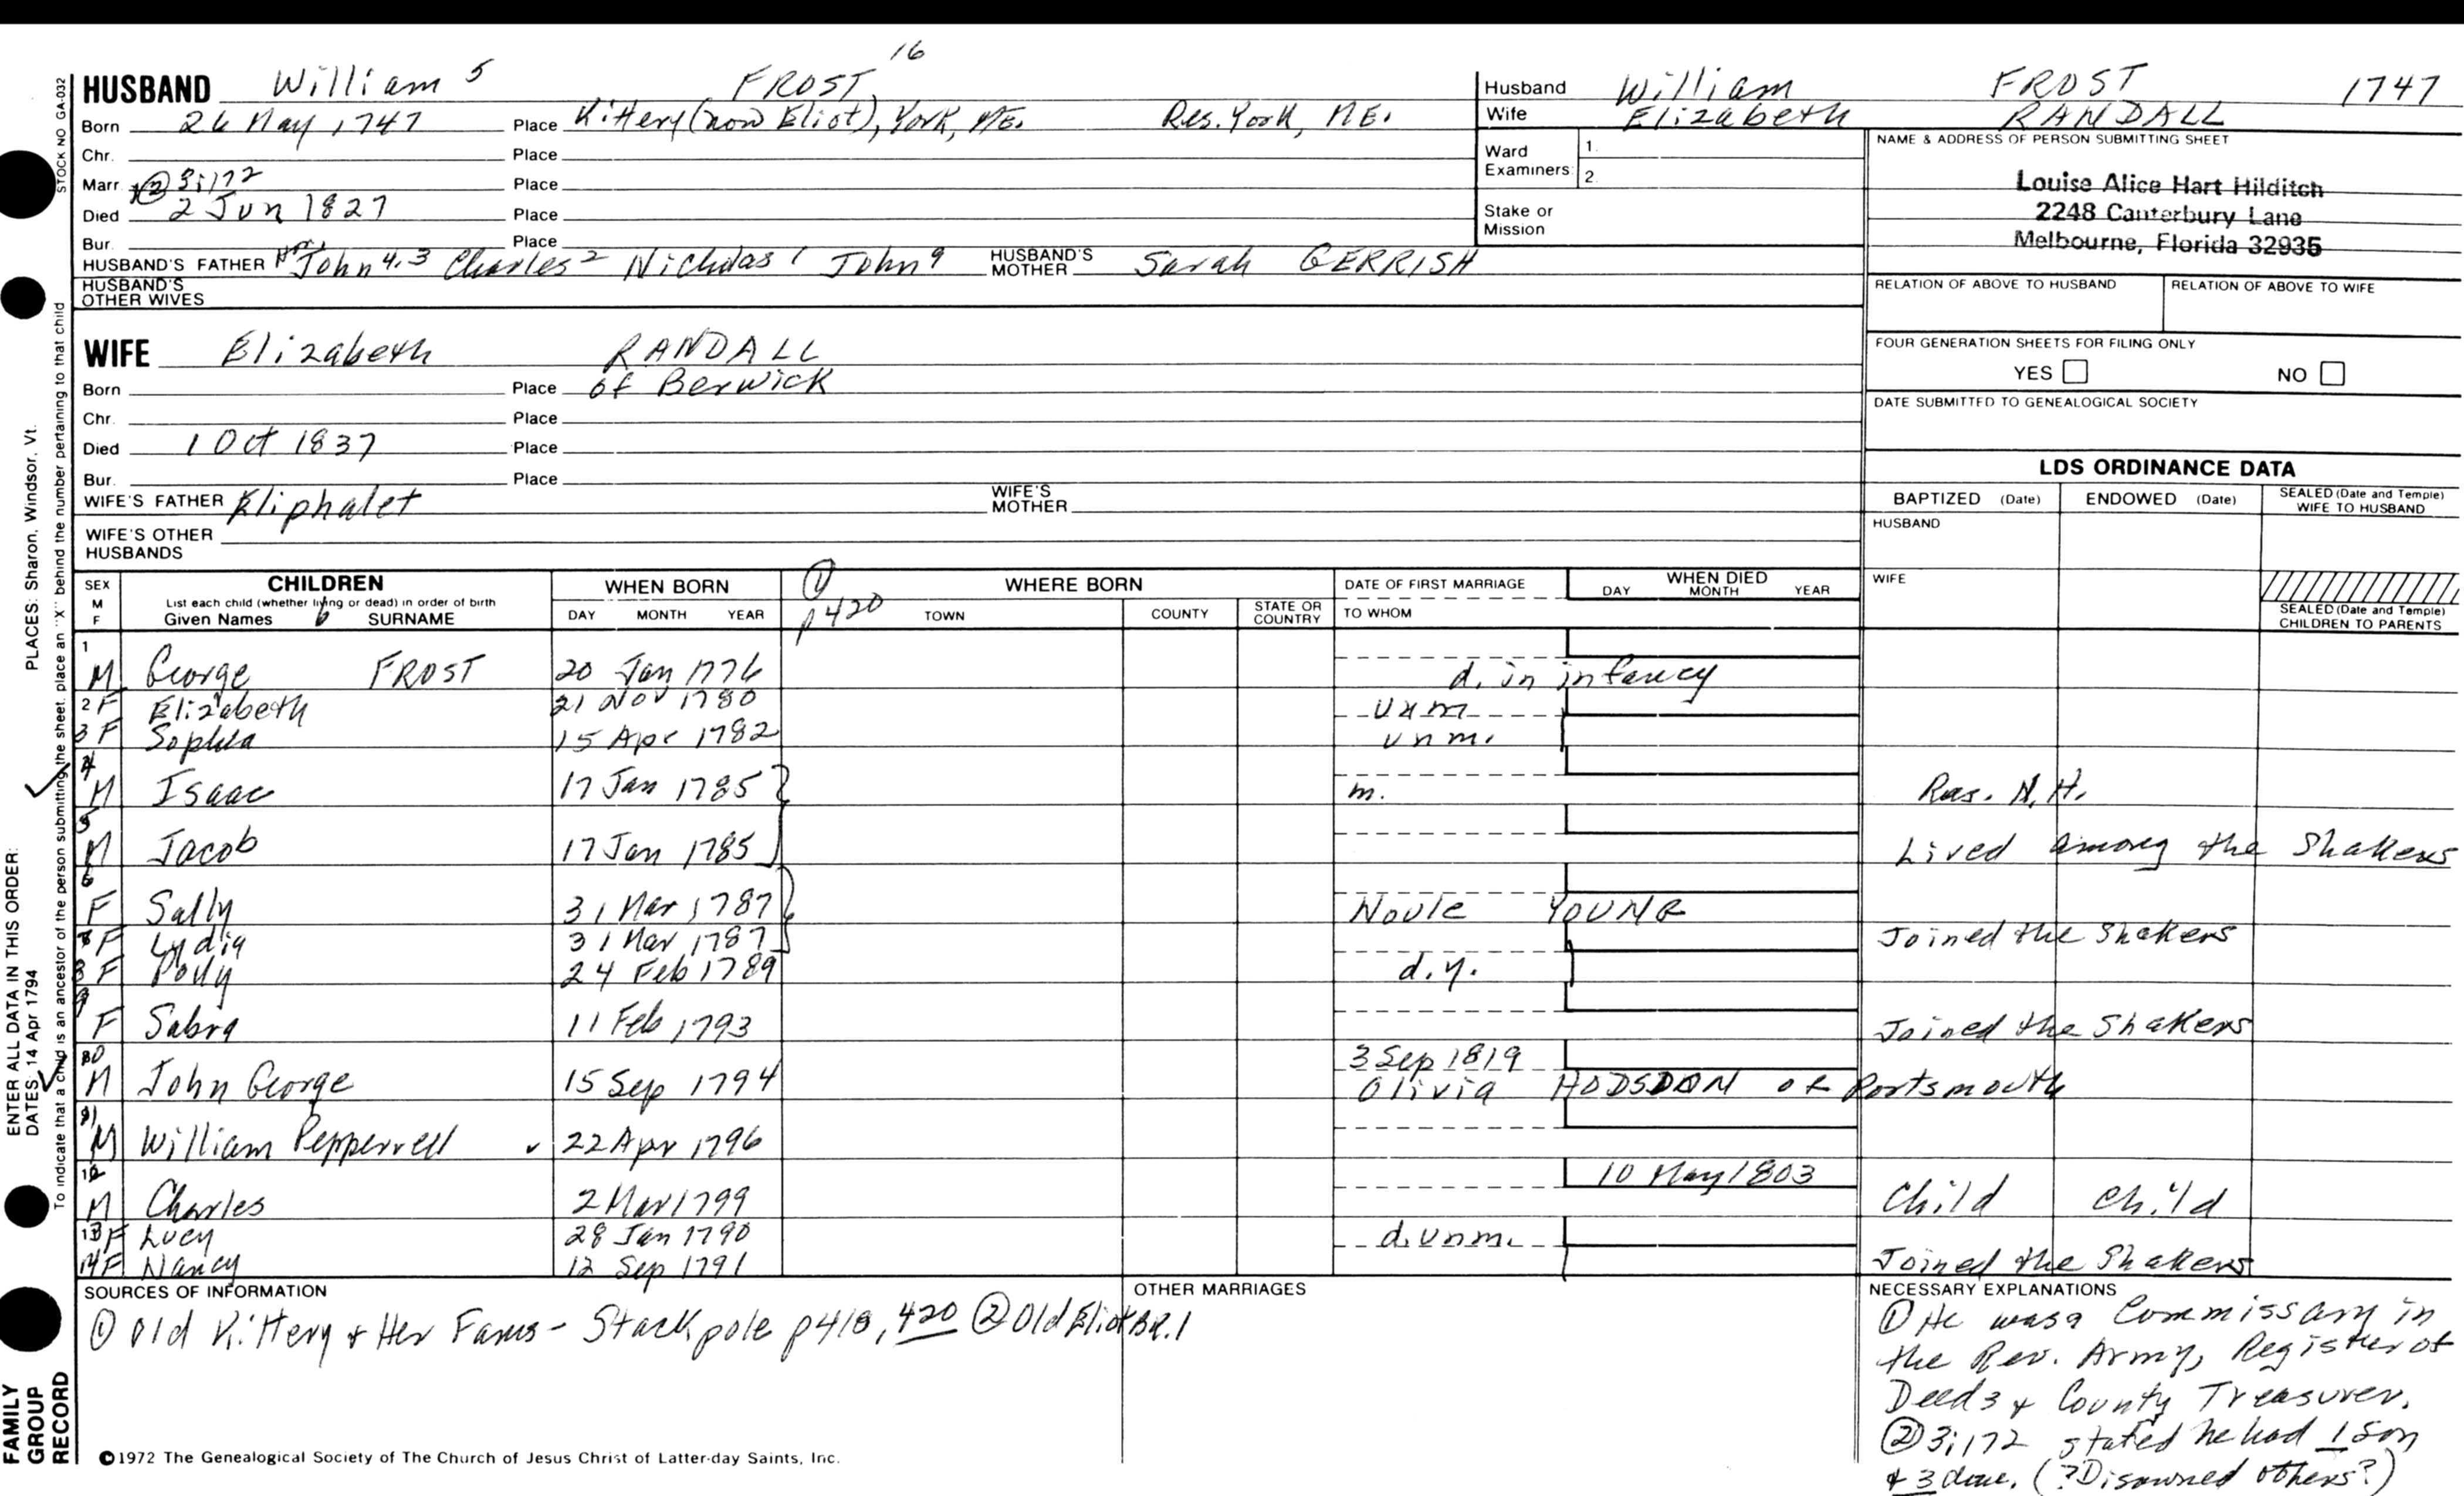 16
HUSBAND William 5 FROST
Born 26 May 1747 Place Kittery (now Eliot), York, ME. Res. York, ME.
Chr. Place
Marr. ② 3:172 Place
Died 2 Jun 1827 Place
Bur. Place
HUSBAND'S FATHER John 4,3 Charles 2 Nicholas 1 John 9 HUSBAND'S MOTHER Sarah GERRISH
HUSBAND'S OTHER WIVES
WIFE Elizabeth RANDALL
Born Place of Berwick
Chr. Place
Died 1 Oct 1837 Place
Bur. Place
WIFE'S FATHER Eliphalet WIFE'S MOTHER
WIFE'S OTHER HUSBANDS
Husband William FROST 1747
Wife Elizabeth RANDALL
Ward Examiners 1.
2.
Stake or Mission
NAME & ADDRESS OF PERSON SUBMITTING SHEET
Louise Alice Hart Hilditch
2248 Canterbury Lane
Melbourne, Florida 32935
RELATION OF ABOVE TO HUSBAND RELATION OF ABOVE TO WIFE
FOUR GENERATION SHEETS FOR FILING ONLY
YES NO
DATE SUBMITTED TO GENEALOGICAL SOCIETY
LDS ORDINANCE DATA
BAPTIZED (Date) ENDOWED (Date) SEALED (Date and Temple) WIFE TO HUSBAND
HUSBAND
WIFE
SEALED (Date and Temple) CHILDREN TO PARENTS
SEX M F
CHILDREN
List each child (whether living or dead) in order of birth
Given Names SURNAME
WHEN BORN
DAY MONTH YEAR
① p420 WHERE BORN
TOWN COUNTY STATE OR COUNTRY
DATE OF FIRST MARRIAGE
TO WHOM
WHEN DIED
DAY MONTH YEAR
1 M George FROST 20 Jan 1776 d. in infancy
2 F Elizabeth 21 Nov 1780 unm
3 F Sophia 15 Apr 1782 unm.
4 M Isaac 17 Jan 1785 m. Res. N.H.
5 M Jacob 17 Jan 1785 Lived among the Shakers
6 F Sally 31 Mar 1787 YOUNG
F Lydia 31 Mar 1787 Joined the Shakers
8 F Polly 24 Feb 1789 d.y.
9 F Sabra 11 Feb 1793 Joined the Shakers
10 M John George 15 Sep 1794 3 Sep 1819 Olivia HODSDON of Portsmouth
11 M William Pepperrell 22 Apr 1796
12 M Charles 2 Mar 1799 10 May 1803 Child Child
13 F Lucy 28 Jan 1790 d. unm.
14 F Nancy 12 Sep 1791 Joined the Shakers
SOURCES OF INFORMATION
① Old Kittery & Her Fams - Stackpole p418, 420 ② Old Eliot BR.1
OTHER MARRIAGES
NECESSARY EXPLANATIONS
① He was a Commissary in
the Rev. Army, Register of
Deeds & County Treasurer.
② 3:172 stated he had 1 son
& 3 dau. (?Disowned others?)
©1972 The Genealogical Society of The Church of Jesus Christ of Latter-day Saints, Inc.
STOCK NO GA-032
To indicate that a child is an ancestor of the person submitting the sheet, place an "X" behind the number pertaining to that child
PLACES: Sharon, Windsor, Vt.
ENTER ALL DATA IN THIS ORDER:
DATES: 14 Apr 1794
FAMILY
GROUP
RECORD